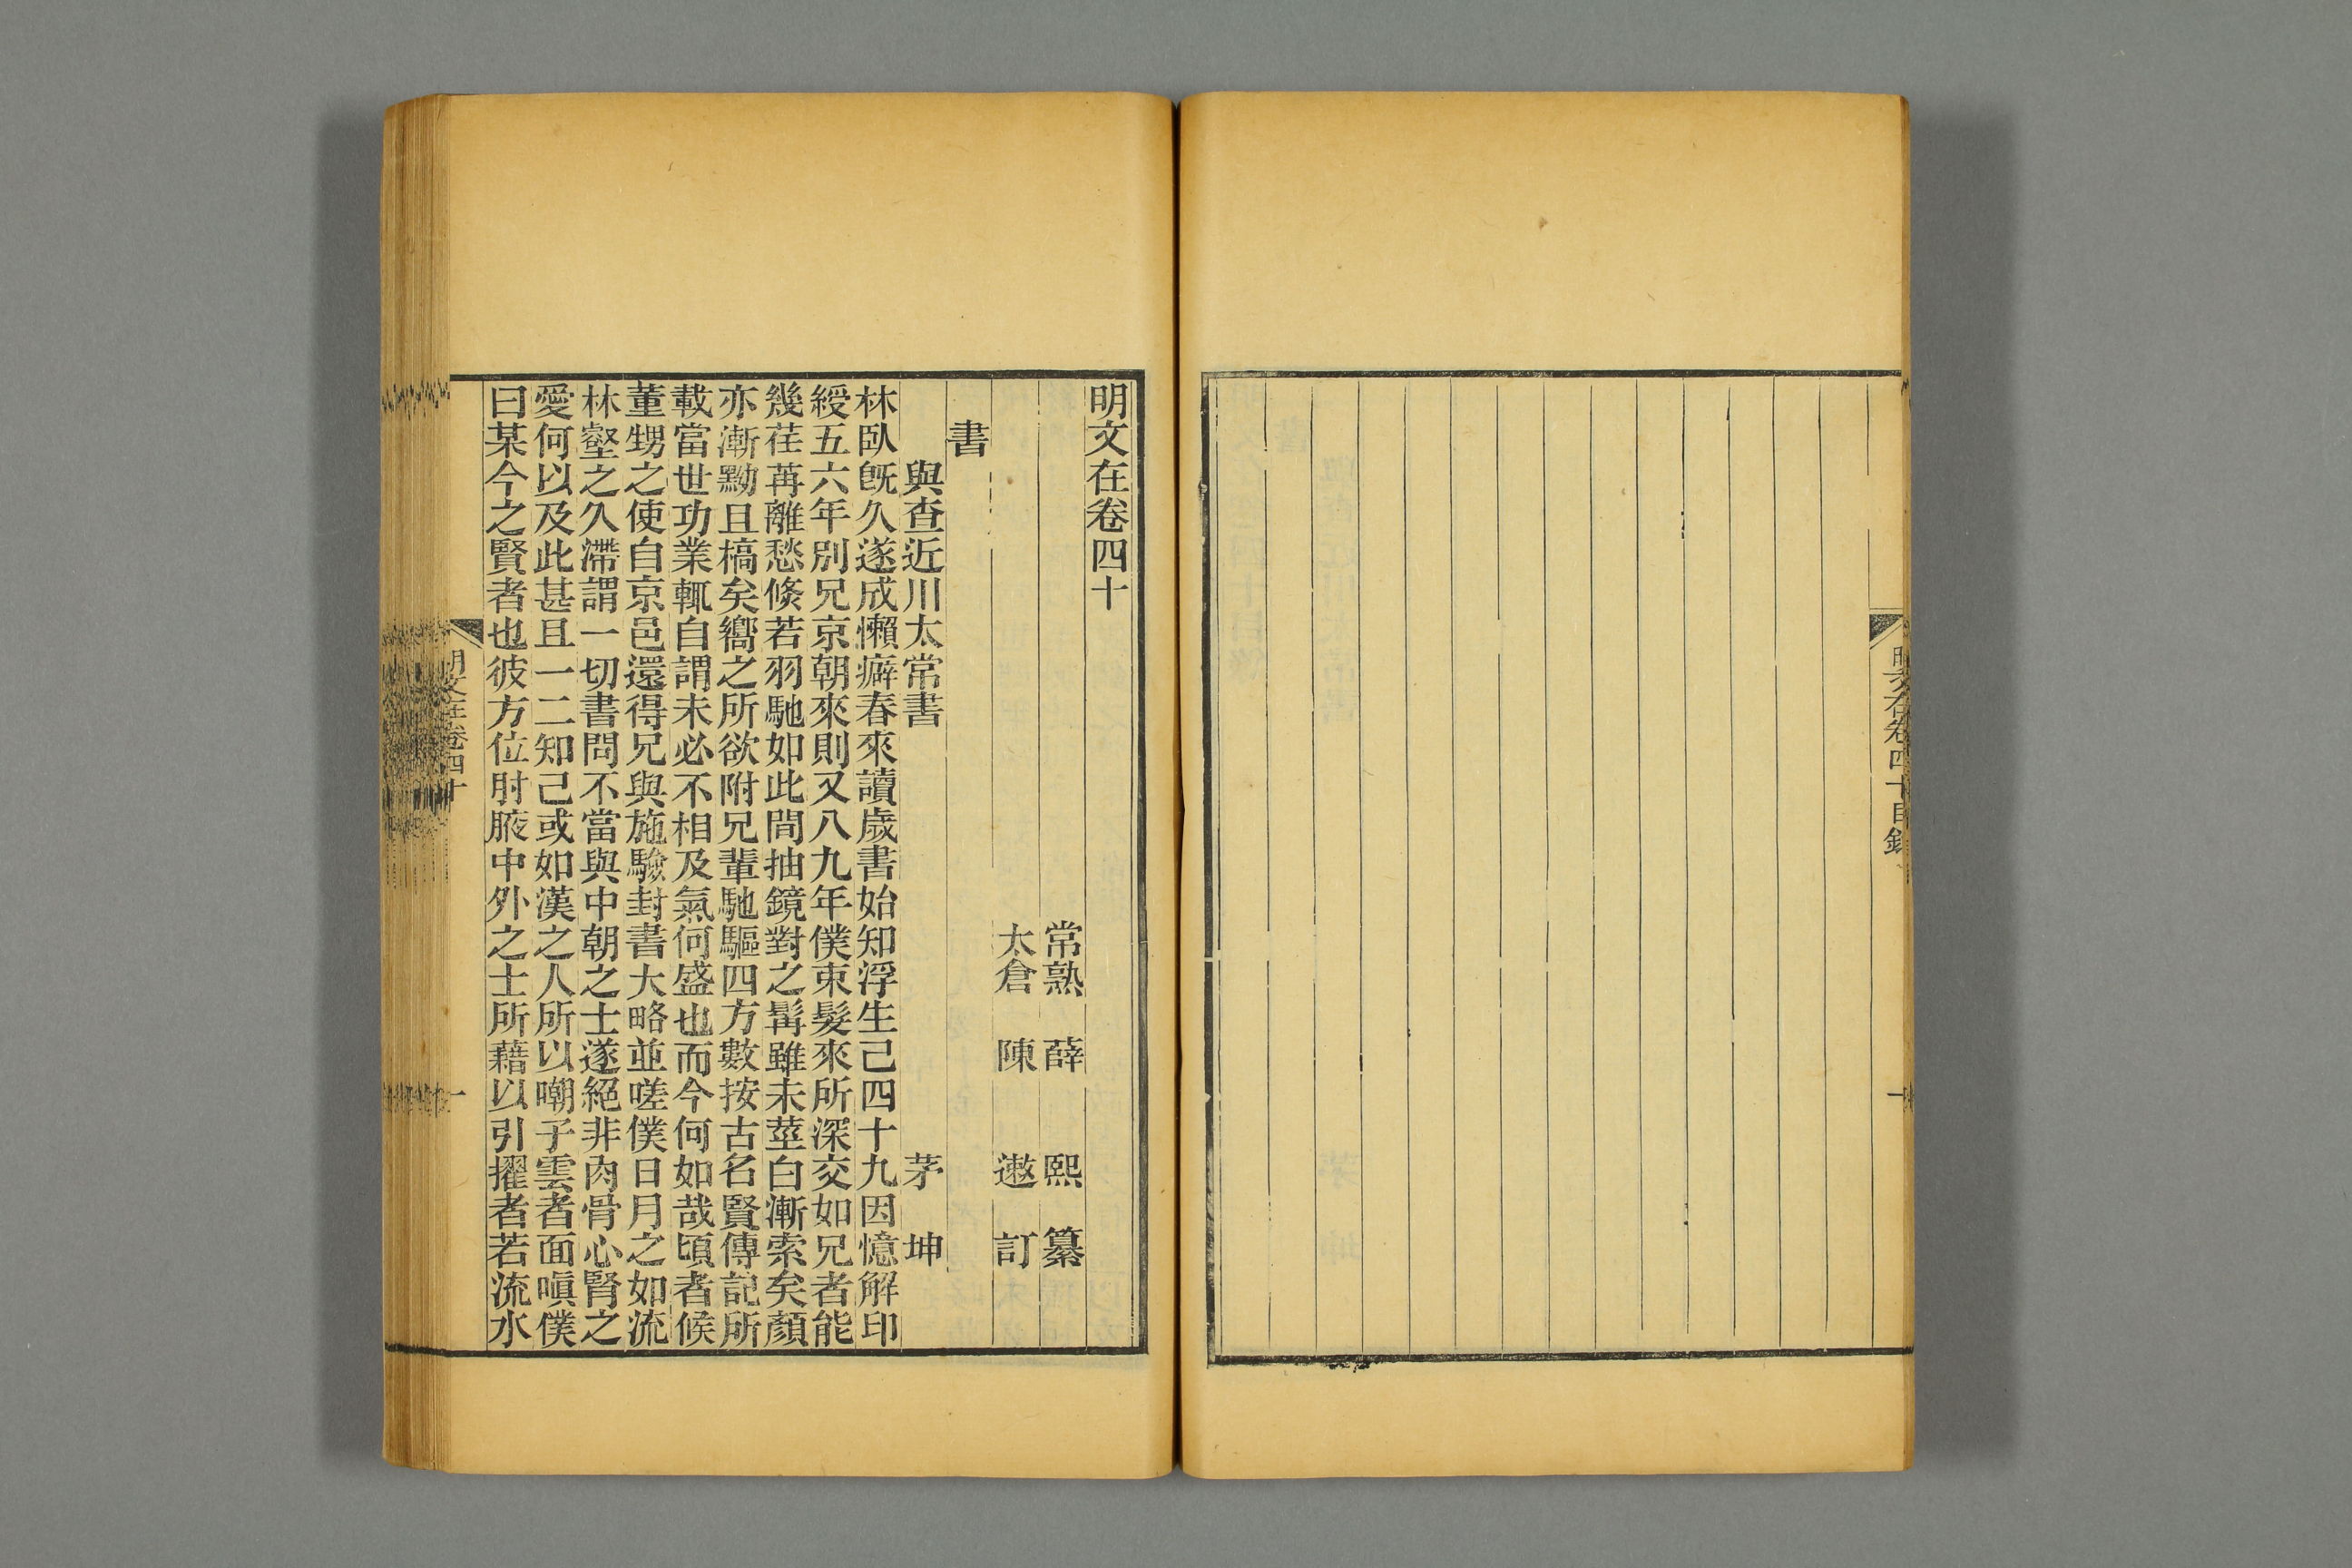 明文在卷四十目錄
一
明文在卷四十
常熟 薛 熙 纂
太倉 陳 遬 訂
書
與查近川太常書 茅 坤
林臥旣久遂成懶癖春來讀歲書始知浮生己四十九因憶解印
綬五六年別兄京朝來則又八九年僕束髮來所深交如兄者能
幾荏苒離愁倏若羽馳如此間抽鏡對之髯雖未莖白漸索矣顏
亦漸黝且槁矣嚮之所欲附兄輩馳驅四方數按古名賢傳記所
載當世功業輒自謂未必不相及氣何盛也而今何如哉頃者候
董甥之使自京邑還得兄與施驗封書大略並嗟僕日月之如流
林壑之久滯謂一切書問不當與中朝之士遂絕非肉骨心腎之
愛何以及此甚且一二知己或如漢之人所以嘲子雲者面嗔僕
曰某今之賢者也彼方位肘腋中外之士所藉以引擢者若流水
明文在卷四十
一